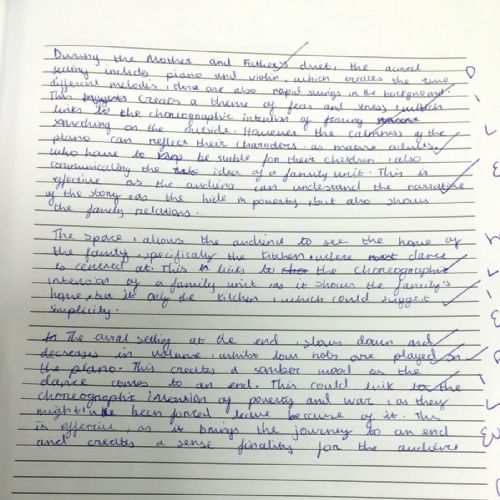 During the Mother and Father's duet, the aural
setting includes piano and violin, which creates the two
different melodies, there are also rapid swings in the background.
This creates a theme of fear and stress which
links to the choreographic intention of fearing
something on the outside. However the calmness of the
piano can reflect their characters as mature adults
who have to keep be stable for their children, also
communicating the idea of a family unit. This is
effective as the audience can understand the narrative
of the story, as the hide in poverty, but also shows
the family relations.
The space, allows the audience to see the home of
the family, specifically the kitchen, where most dance
is centred at. This links to the choreographic
intention of a family unit as it shows the family's
home, but is only the kitchen, which could suggest
simplicity.
The aural setting at the end, slows down and
decreases in volume, whilst low nots are played on
the piano. This creates a somber mood as the
dance comes to an end. This could link to the
choreographic intension of poverty and war, as they
might been forced leave because of it. This
is effective, as it brings the journey to an end
and creates a sense finality for the audience